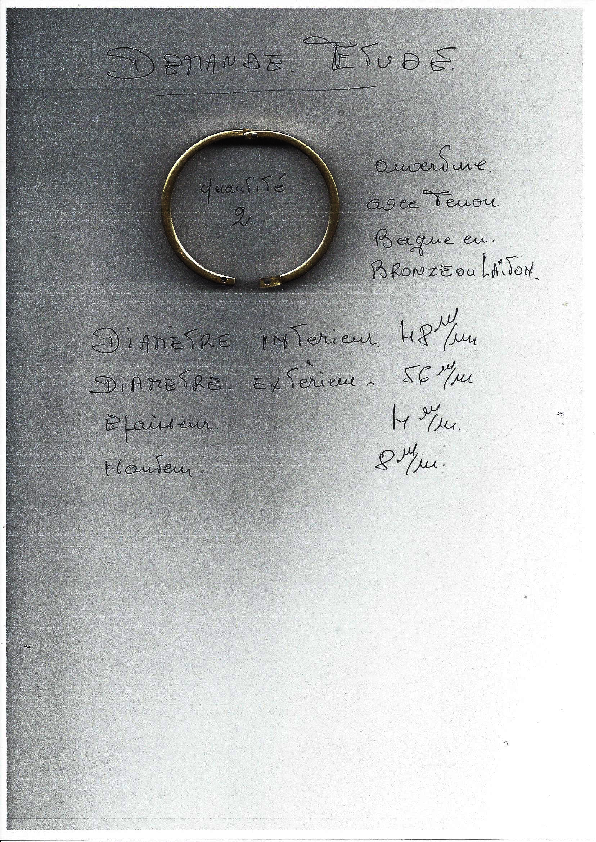 DEMANDE ETUDE
quantité
2
ouverture
avec Tenon
Bague en
BRONZE OU LAITON.
DIAMÈTRE INTérieur 48 m/m
DIAMETRE EXTérieur. 56 m/m
Epaisseur 4 m/m.
Hauteur. 8 m/m.